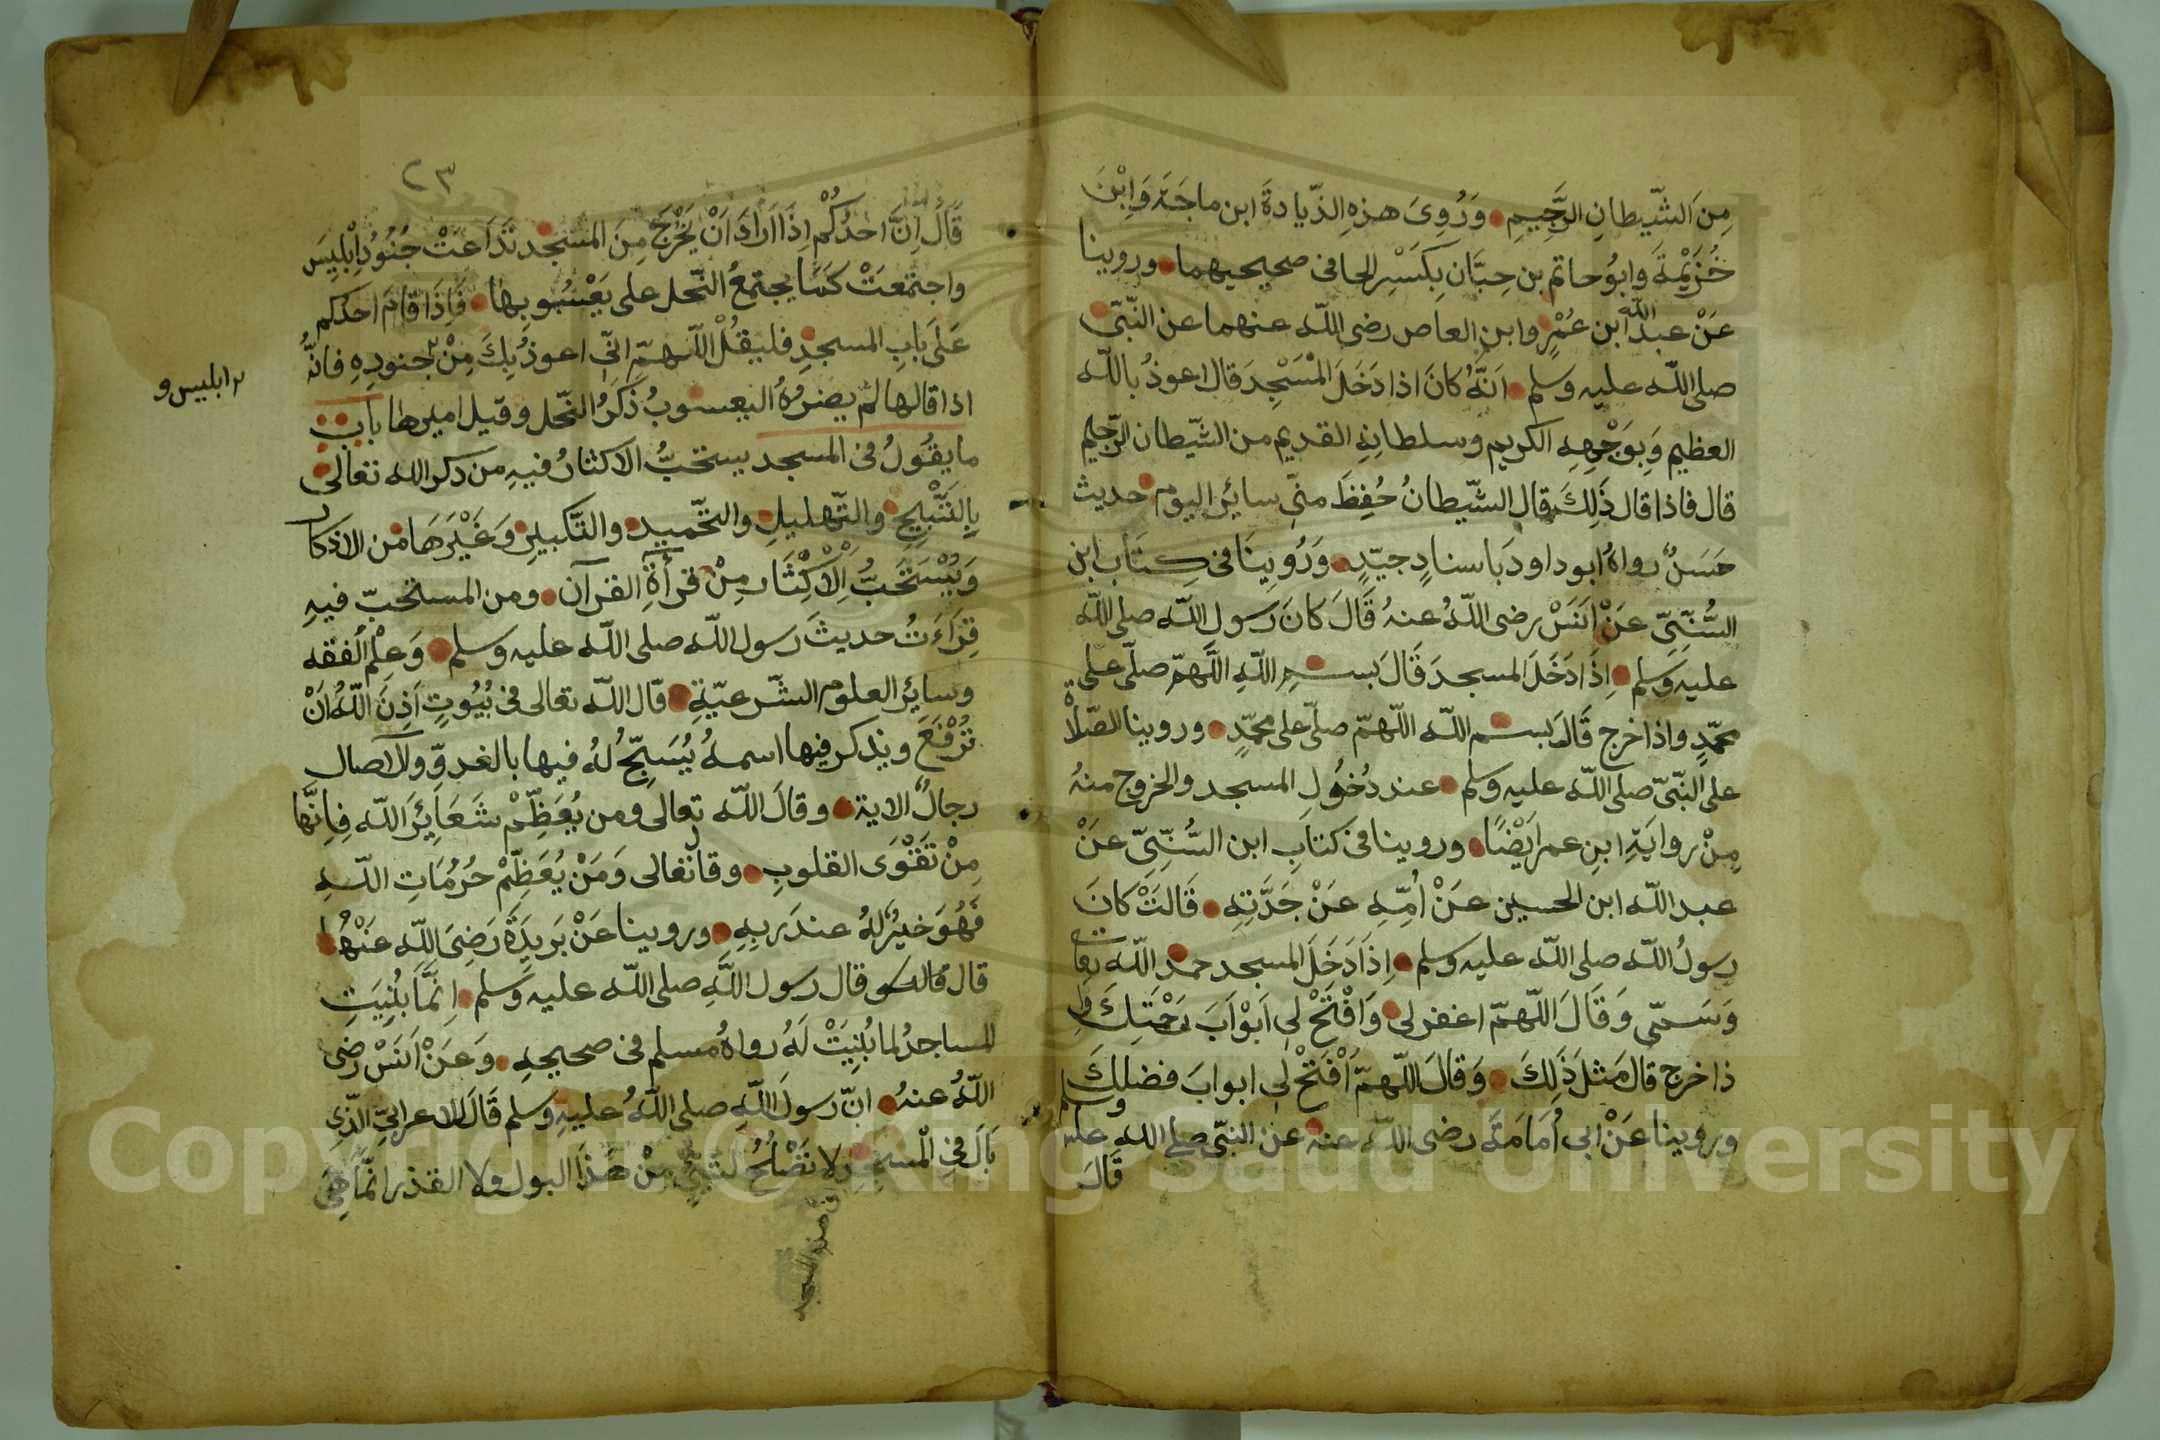 مِنَ الشَّيطانِ الرَّجِيمِ وَرُوِىَ هذِهِ الذّيادةَ ابن ماجَةَ وَابْنَ
خُزَيْمَةَ وابُو حاتم بن حِبّان بِكَسْرِ الحا فى صحيحيهما وروينا
عَنْ عبد الله ابن عُمْرٍ وابن العاص رضى اللّه عنهما عن النّبّى
صلى اللّه عليه وسلم اَنَّهُ كانَ اذا دَخَلَ الْمَسْجِدَ قال اعوذُ باللّه
العظيم وَبِوَجْهِهِ الكريم وسلطانِهِ القديم من الشّيطان الرّجيم
قال فاذا قال ذَلِكَ قال الشّيطانُ حُفِظَ منّى سائرُ اليوم حديث
حَسَنٌ رواهُ ابو داود بَاسنادٍ جيّدٍ وَرُوِينَا فى كِتَاب ابن
السُّنِّىِّ عَنْ اَنَسْ رضى اللّهُ عنهُ قَالَ كانَ رسول اللّه صلى اللّه
عليه وسلم اِذَا دَخَلَ المسجدَ قَالَ بسمِ اللّهِ اللَّهمّ صلّى على
محمّدٍ واذا خرج قَالَ بسم اللّه اللّهمّ صلّى على محمّدٍ وروينا الصّلاة
على النّبىّ صلى اللّه عليه وسلم عند دُخُولِ المسجد والخروج منهُ
مِنْ روايَةِ ابنِ عمر اَيْضًا وروينا فى كتابِ ابن السُّنّىِّ عَنْ
عبد اللّه ابن الحسين عَنْ اُمِّهِ عَنْ جَدَّتِهِ قَالَتْ كانَ
رسولُ اللّه صلى اللّه عليه وسلم اِذَا دَخَلَ المسجد حمد اللّه تعا
وَسَمّى وَقَالَ اللّهمّ اغفر لى وَافْتَحْ لى اَبْوَابَ رَحْمَتِكَ وَاِ
ذا خرج قال مَثلَ ذَلِكَ وَقالَ اللّهمّ اَفْتَحْ لى ابوابَ فضلِكَ
وروينا عَنْ ابى اُمَامَةَ رضى اللّه عنه عن النبّى صلى الله عليه وسلم
قَالَ
٢٣
قَالَ اِنَّ احَدُكُمْ اِذَا اَرَادَ اَنْ يَخْرُجَ مِنَ المسْجد تَدَاعَتْ جُنُودُ اِبْلِيسَ
واجتَمعَتْ كَمَا يجتمعُ النّحل على يَعْسُوبِها فَاِذَا قَامَ احدكم
عَلَى بَابِ المسجدِ فليقُلْ اللّهمّ انّى اعوذُ بِكَ مِنْ جنودِهِ فانّهُ
٢ ابليس و
اذا قالها لم يضرّهُ اليعسوبُ ذَكَرُ النّحل وقيل اميرها باب
ما يقُولُ فى المسجد يستحبُّ الاكثارُ فيهِ من ذكر الله تعالى
بِالتَّسْبِيحِ والتّهليلِ والتّحْميدِ والتّكبيرِ وَغَيْرَهَا من الاذكار
وَيُسْتَحَبُّ الْاِكْثَار مِنْ قرأةِ القرآن ومن المستحبّ فيهِ
قِرَاءَتُ حديثَ رسول اللّه صلى اللّه عليه وسلم وَعِلْم الفقه
وسائر العلوم الشّرعيّةِ قال اللّه تعالى فى بُيُوتٍ اَذِنَ اللّهُ اَنْ
تُرْفَعَ ويذكر فيها اسمهُ يُسَبِّحُ لهُ فيها بالغدوّ والاصال
رجالٌ الاية وقالَ اللّه تعالى ومن يُعَظِّمْ شَعَائِرَ اللّه فِاِنَّها
مِنْ تَقْوَى القلوبِ وقال تعالى وَمَنْ يُعَظِّمْ حُرُمَاتِ اللّهِ
فَهُوَ خيرٌ لهُ عندَ ربهِ وروينا عَنْ بَرِيدَةَ رَضِىَ اللّه عَنْهُ
قال قال رسول اللَّهِ صلى اللّه عليه وسلم اِنَّمَا بُنِيَتِ
المساجدُ لما بُنِيَتْ لَهُ رواهُ مسلم فى صحيحِهِ وَعَنْ اَنَسْ رضى
اللّهُ عنهُ انّ رسولَ اللّهِ صلى اللّهُ عليهِ وسلم قَالَ للاعرابىِّ الّذِى
بَالَ فى المسجدِ لا تَصْلُحُ لشىءٍ مِنْ هَذَا البول ولا القذر انّما هِىَ